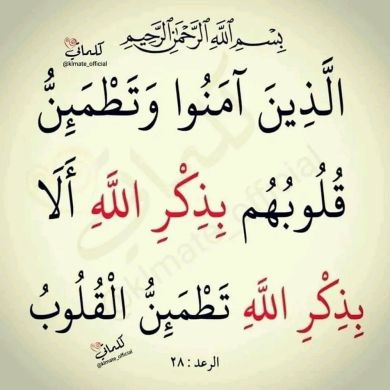 بِسْمِ اللَّهِ الرَّحْمَٰنِ الرَّحِيمِ
كلماتي
@klmate_official
الَّذِينَ آمَنُوا وَتَطْمَئِنُّ
قُلُوبُهُم بِذِكْرِ اللَّهِ أَلَا
بِذِكْرِ اللَّهِ تَطْمَئِنُّ الْقُلُوبُ
كلماتي
@klmate_official
الرعد : ٢٨
كلماتي
@klmate_official